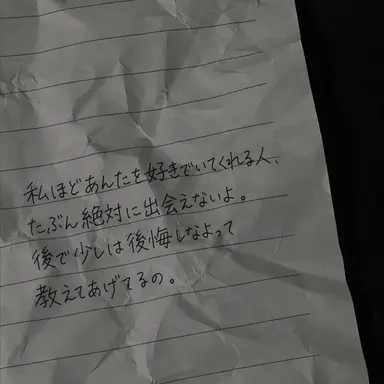 私ほどあんたを好きでいてくれる人、
たぶん絶対に出会えないよ。
後で少しは後悔しなよって
教えてあげてるの。